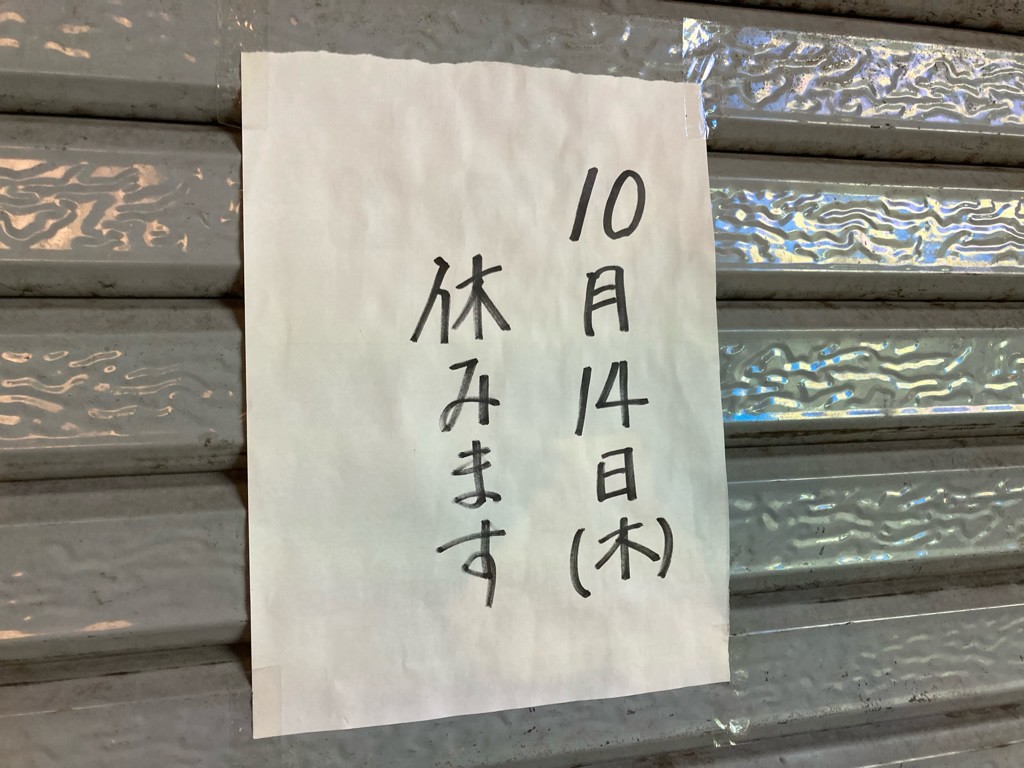 10月14日(木)
休みます